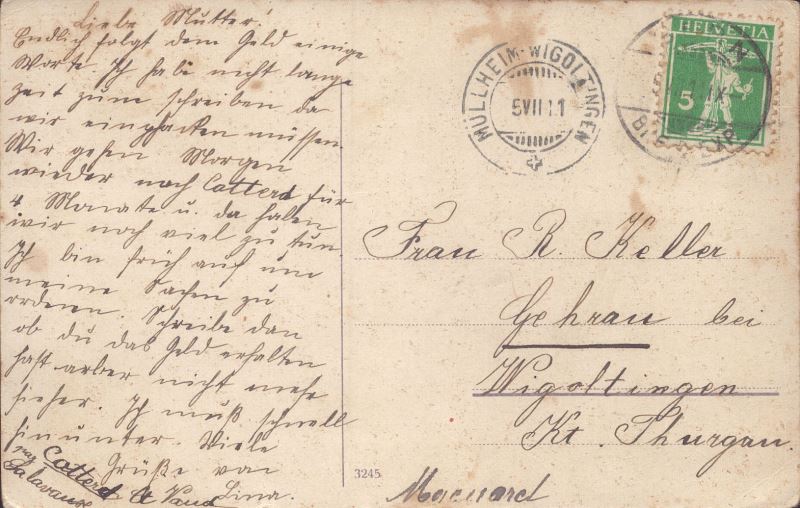 Liebe Mutter!
Endlich folgt dem Geld einige
Worte. Ich habe nicht lange
zeit zum schreiben da
wir einpacken müssen.
Wir gehen Morgen
wieder nach Cotterd für
4 Monate u. da haben
wir noch viel zu tun.
Ich bin früh auf um
meine Sachen zu
ordenen. Schreibe dan
ob du das Geld erhalten
hast arber nicht mehr
hieher. Ich muß schnell
hinunter. Viele
Grüße von
Lina.
Cotterd
Salavaux
Ct Vaud
MÜLLHEIM-WIGOLTINGEN
5 VII 11
HELVETIA
5
Frau R. Keller
Gehrau bei
Wigoltingen
Kt. Thurgau.
3245